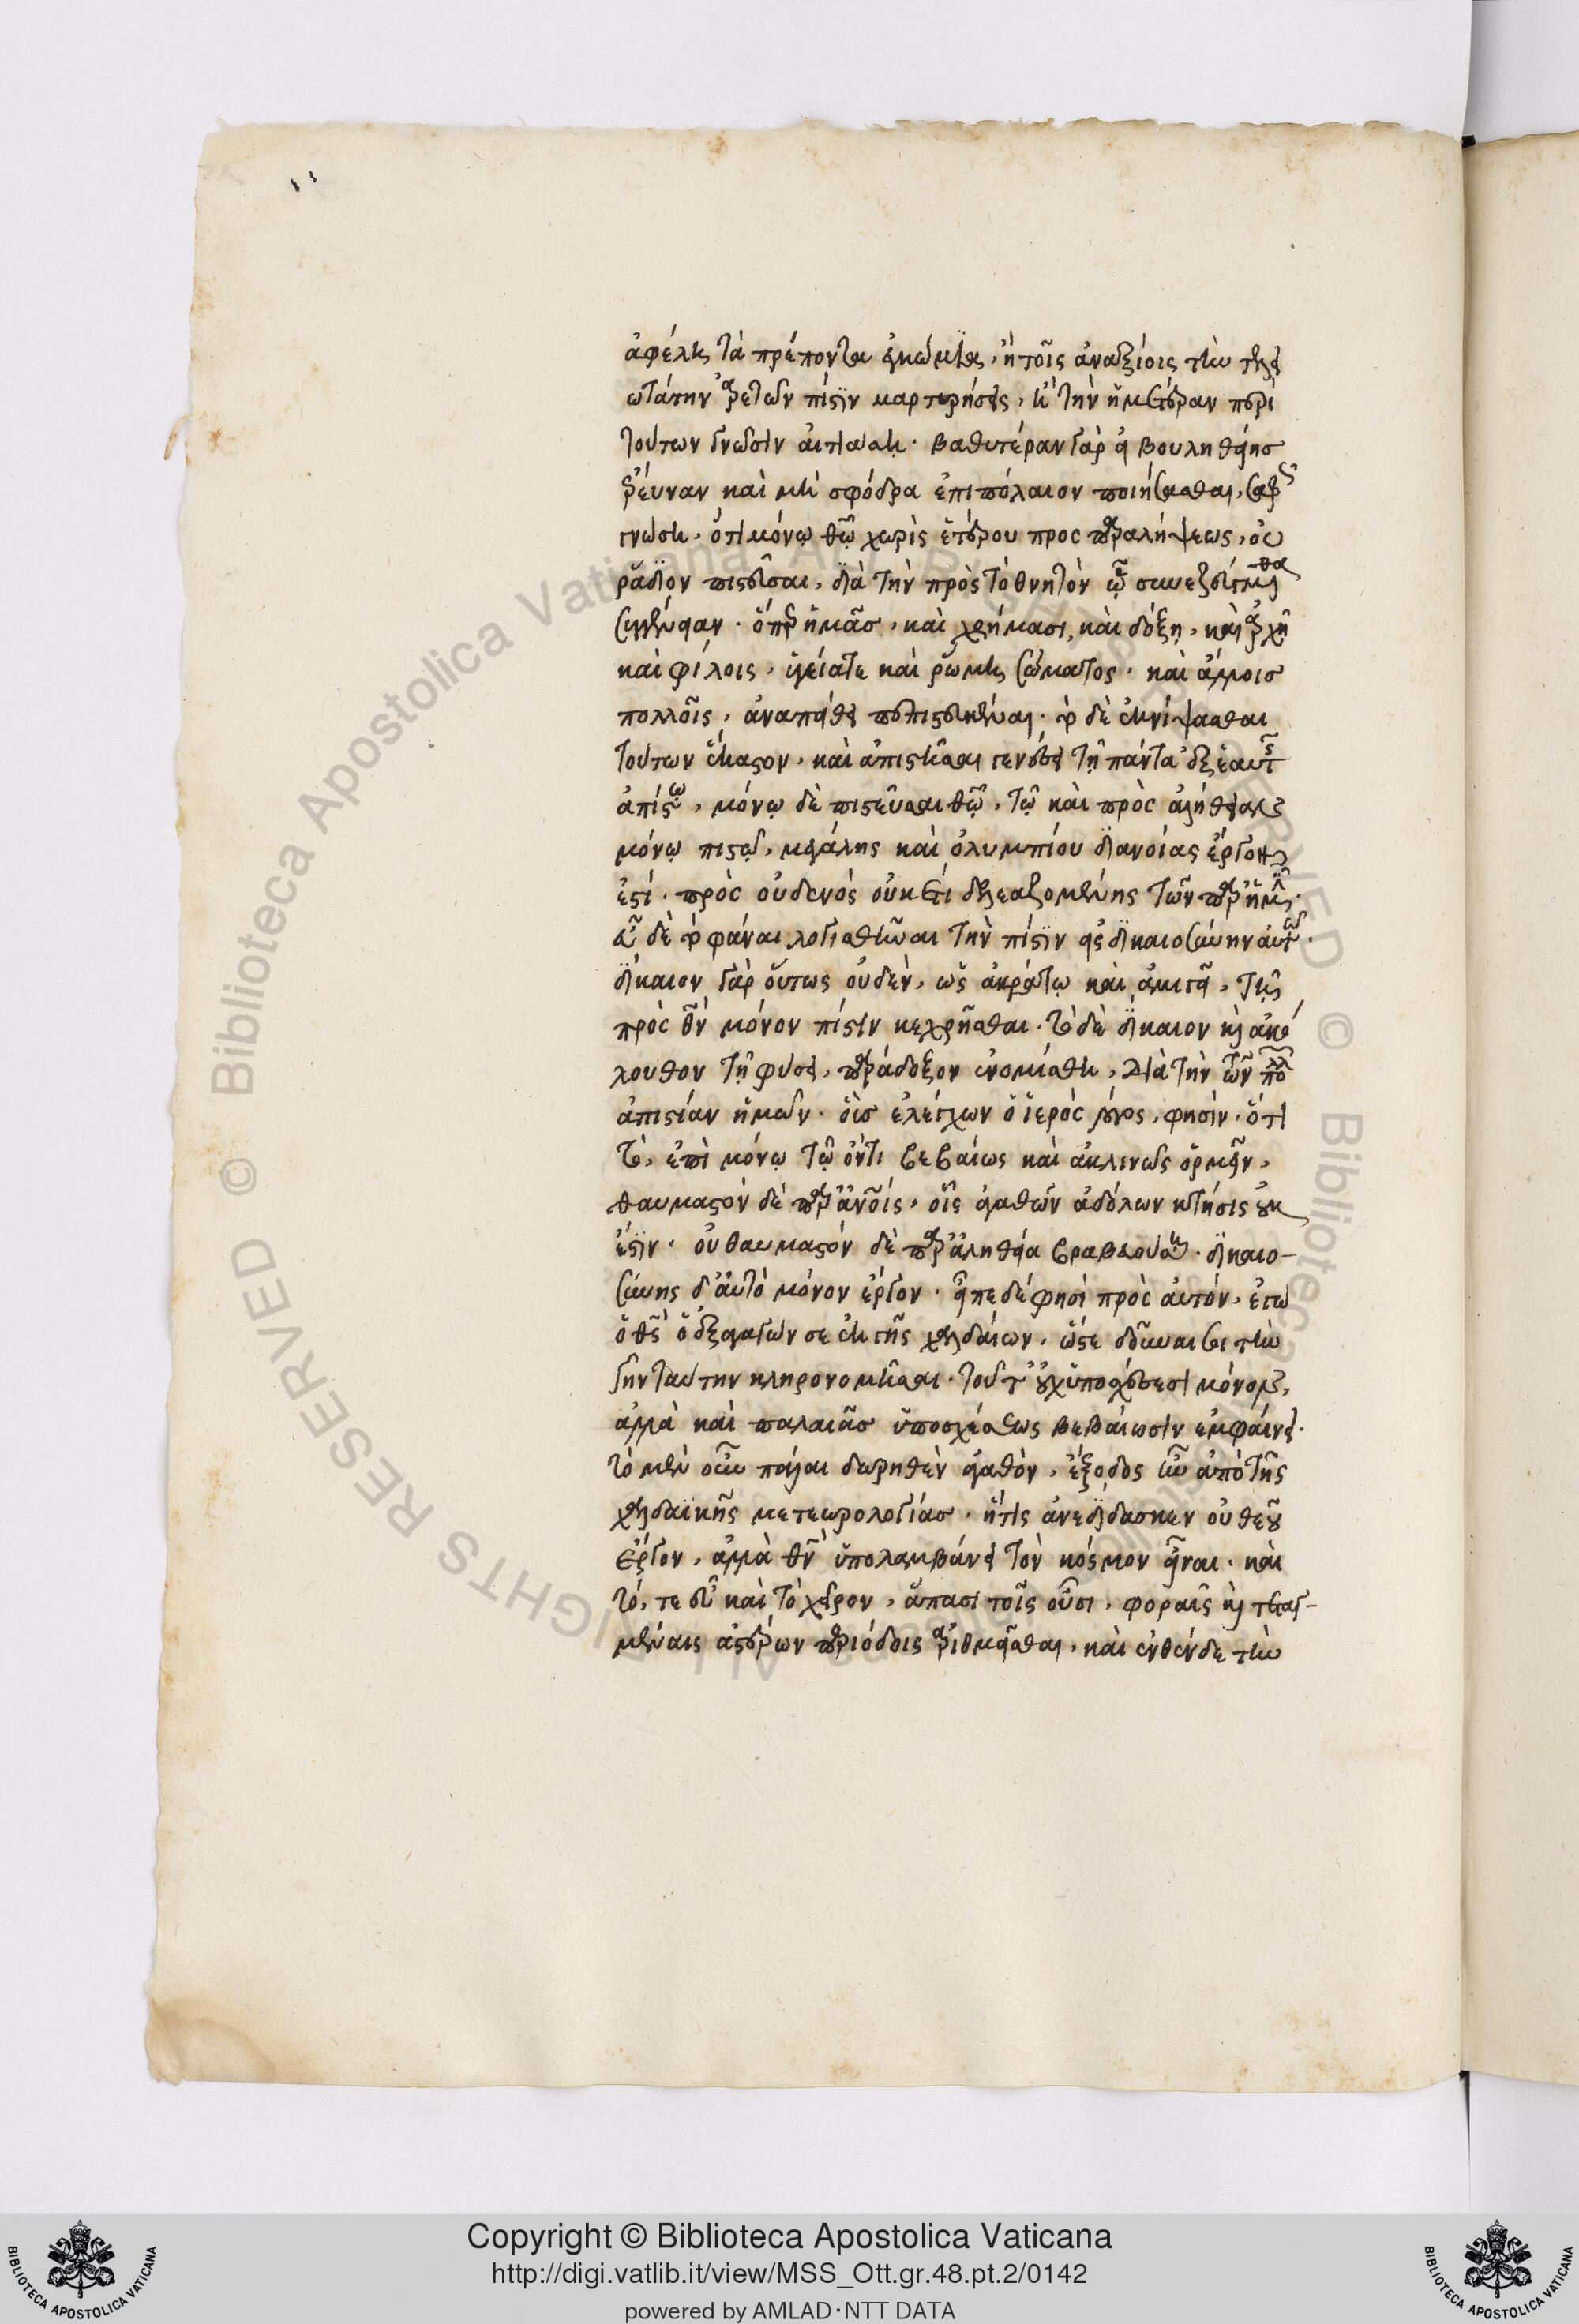 ἀφέλῃς τὰ πρέποντα ἐγκώμια, ἢ τοῖς ἀναξίοις τὴν τελει
ωτάτην ἀρετῶν πίστιν μαρτυρήσεις, ἢ τὴν ἡμετέραν περὶ
τούτων γνῶσιν αἰτιάσῃ. βαθυτέραν γὰρ εἰ βουληθείης
ἔρευναν καὶ μὴ σφόδρα ἐπιπόλαιον ποιήσασθαι, σαφῶς
γνώσῃ, ὅτι μόνῳ θεῷ χωρὶς ἑτέρου προσπαραλήψεως, οὐ
ῥάδιον πιστεῦσαι, διὰ τὴν πρὸς τὸ θνητὸν ᾧ συνεζεύγμεθα
συγγένειαν. ὅπερ ἡμᾶς, καὶ χρήμασι, καὶ δόξῃ, καὶ ἀρχῇ
καὶ φίλοις, ὑγείᾳ τε καὶ ῥώμῃ σώματος, καὶ ἄλλοις
πολλοῖς, ἀναπείθει πεπιστευκέναι. τὸ δὲ ἐκνίψασθαι
τούτων ἕκαστον, καὶ ἀπιστῆσαι γενέσει τῇ πάντα ἐξ ἑαυτῆς
ἀπίστῳ, μόνῳ δὲ πιστεῦσαι θεῷ, τῷ καὶ πρὸς ἀλήθειαν
μόνῳ πιστῷ, μεγάλης καὶ ὀλυμπίου διανοίας ἔργον
ἐστί. πρὸς οὐδενὸς οὐκέτι δελεαζομένης τῶν παρ' ἡμῖν.
εὖ δὲ τὸ φάναι λογισθῆναι τὴν πίστιν εἰς δικαιοσύνην αὐτῷ.
δίκαιον γὰρ οὕτως οὐδὲν, ὡς ἀκράτῳ καὶ ἀμιγεῖ, τῇ
πρὸς θεὸν μόνον πίστιν κεχρῆσθαι. τὸ δὲ δίκαιον καὶ ἀκό
λουθον τῇ φύσει, παράδοξον ἐνομίσθη, διὰ τὴν τῶν πολλῶν
ἀπιστίαν ἡμῶν. οἷς ἐλέγχων ὁ ἱερὸς λόγος, φησὶν, ὅτι
τὸ, ἐπὶ μόνῳ τῷ ὄντι βεβαίως καὶ ἀκλινῶς ὁρμεῖν,
θαυμαστὸν δὲ παρ' ἀνθρώποις, οἷς ἀγαθῶν ἀδόλων κτῆσις οὐκ
ἔστιν. οὐ θαυμαστὸν δὲ παρ' ἀληθείᾳ βραβευούσῃ. δικαιο-
σύνης δ' αὐτὸ μόνον ἔργον. εἶπε δέ φησι πρὸς αὐτόν, ἐγὼ
ὁ θεὸς ὁ ἐξαγαγών σε ἐκ γῆς χαλδαίων, ὥστε δοῦναι σοι τὴν
γῆν ταύτην κληρονομῆσαι. τοῦτ' οὐχ ὑπόσχεσιν μόνον,
ἀλλὰ καὶ παλαιᾶς ὑποσχέσεως βεβαίωσιν ἐμφαίνει.
τὸ μὲν οὖν πάλαι δωρηθὲν ἀγαθὸν, ἔξοδος ἦν ἀπὸ τῆς
χαλδαϊκῆς μετεωρολογίας, ἥτις ἀνεδίδασκεν οὐ θεοῦ
ἔργον, ἀλλὰ θεὸν ὑπολαμβάνει τὸν κόσμον εἶναι. καὶ
τό, τε εὖ καὶ τὸ χεῖρον, ἅπασι τοῖς οὖσι, φοραῖς καὶ τεταγ-
μέναις ἀστέρων περιόδοις ἀριθμεῖσθαι, καὶ ἐνθένδε τὴν